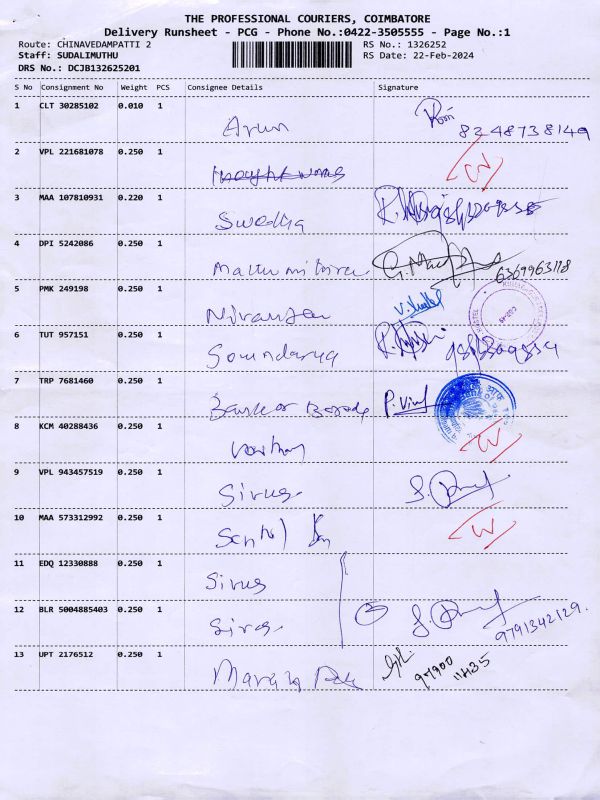 THE PROFESSIONAL COURIERS, COIMBATORE
Delivery Runsheet - PCG - Phone No.:0422-3505555 - Page No.:1
Route: CHINAVEDAMPATTI 2 RS No.: 1326252
Staff: SUDALIMUTHU RS Date: 22-Feb-2024
DRS No.: DCJB132625201
S No Consignment No Weight PCS Consignee Details Signature
1 CLT 30285102 0.010 1 Arun 8248738149
2 VPL 221681078 0.250 1
3 MAA 107810931 0.220 1 Swedha
4 DPI 5242086 0.250 1 6369963118
5 PMK 249198 0.250 1 Niranjan
6 TUT 957151 0.250 1 Soundarya
7 TRP 7681460 0.250 1 Bank of Baroda
8 KCM 40288436 0.250 1
9 VPL 943457519 0.250 1 Sirus
10 MAA 573312992 0.250 1
11 EDQ 12330888 0.250 1 Sirus
12 BLR 5004885403 0.250 1 Sirus 9791342129.
13 UPT 2176512 0.250 1 97900
11435